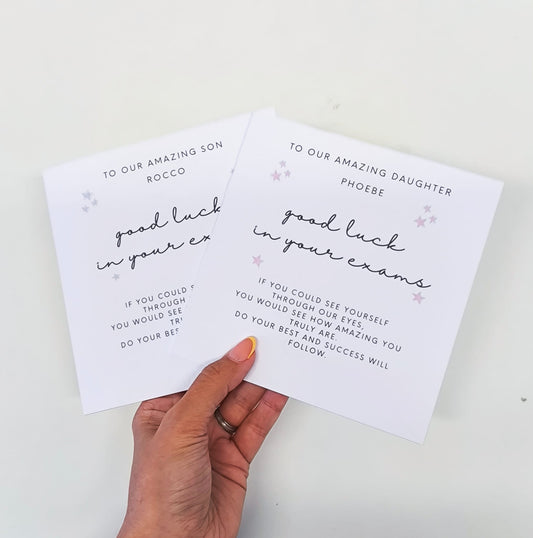 TO OUR AMAZING SON
ROCCO
good luck
in your
IF YOU COULD
THROUGH
YOU WOULD SEE
DO YOUR BEST
TO OUR AMAZING DAUGHTER
PHOEBE
good luck
in your exams
IF YOU COULD SEE YOURSELF
THROUGH OUR EYES,
YOU WOULD SEE HOW AMAZING YOU
TRULY ARE.
DO YOUR BEST AND SUCCESS WILL
FOLLOW.